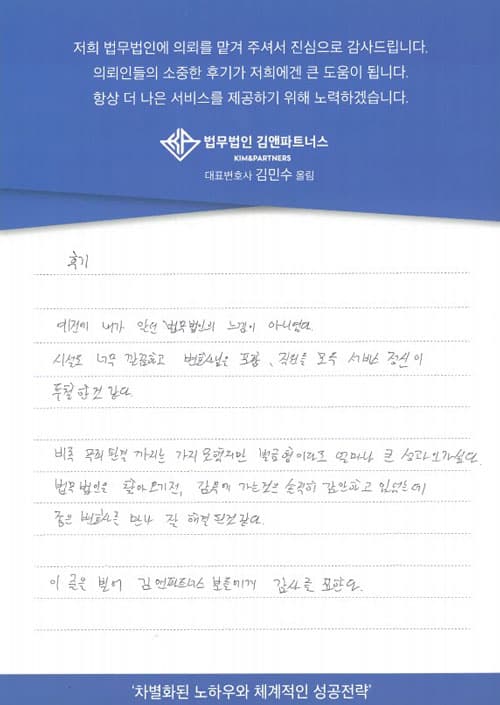 저희 법무법인에 의뢰를 맡겨 주셔서 진심으로 감사드립니다.
의뢰인들의 소중한 후기가 저희에겐 큰 도움이 됩니다.
항상 더 나은 서비스를 제공하기 위해 노력하겠습니다.
법무법인 김앤파트너스
KIM&PARTNERS
대표변호사 김민수 올림
후기
예전에 내가 알던 법무법인의 느낌이 아니었다.
시설도 너무 깔끔하고 변호사님을 포함, 직원들 모두 서비스 정신이
투철한것 같다.
비록 까지는 가지 못했지만 벌금형이라도 얼마나 큰 성과인가싶다.
법무법인을 찾아오기전, 감옥에 가는것은 솔직히 감안하고 있었는데
좋은 변호사를 만나 잘 해결된것같다.
이 글을 빌어 김앤파트너스 분들에게 감사를 표한다.
'차별화된 노하우와 체계적인 성공전략'